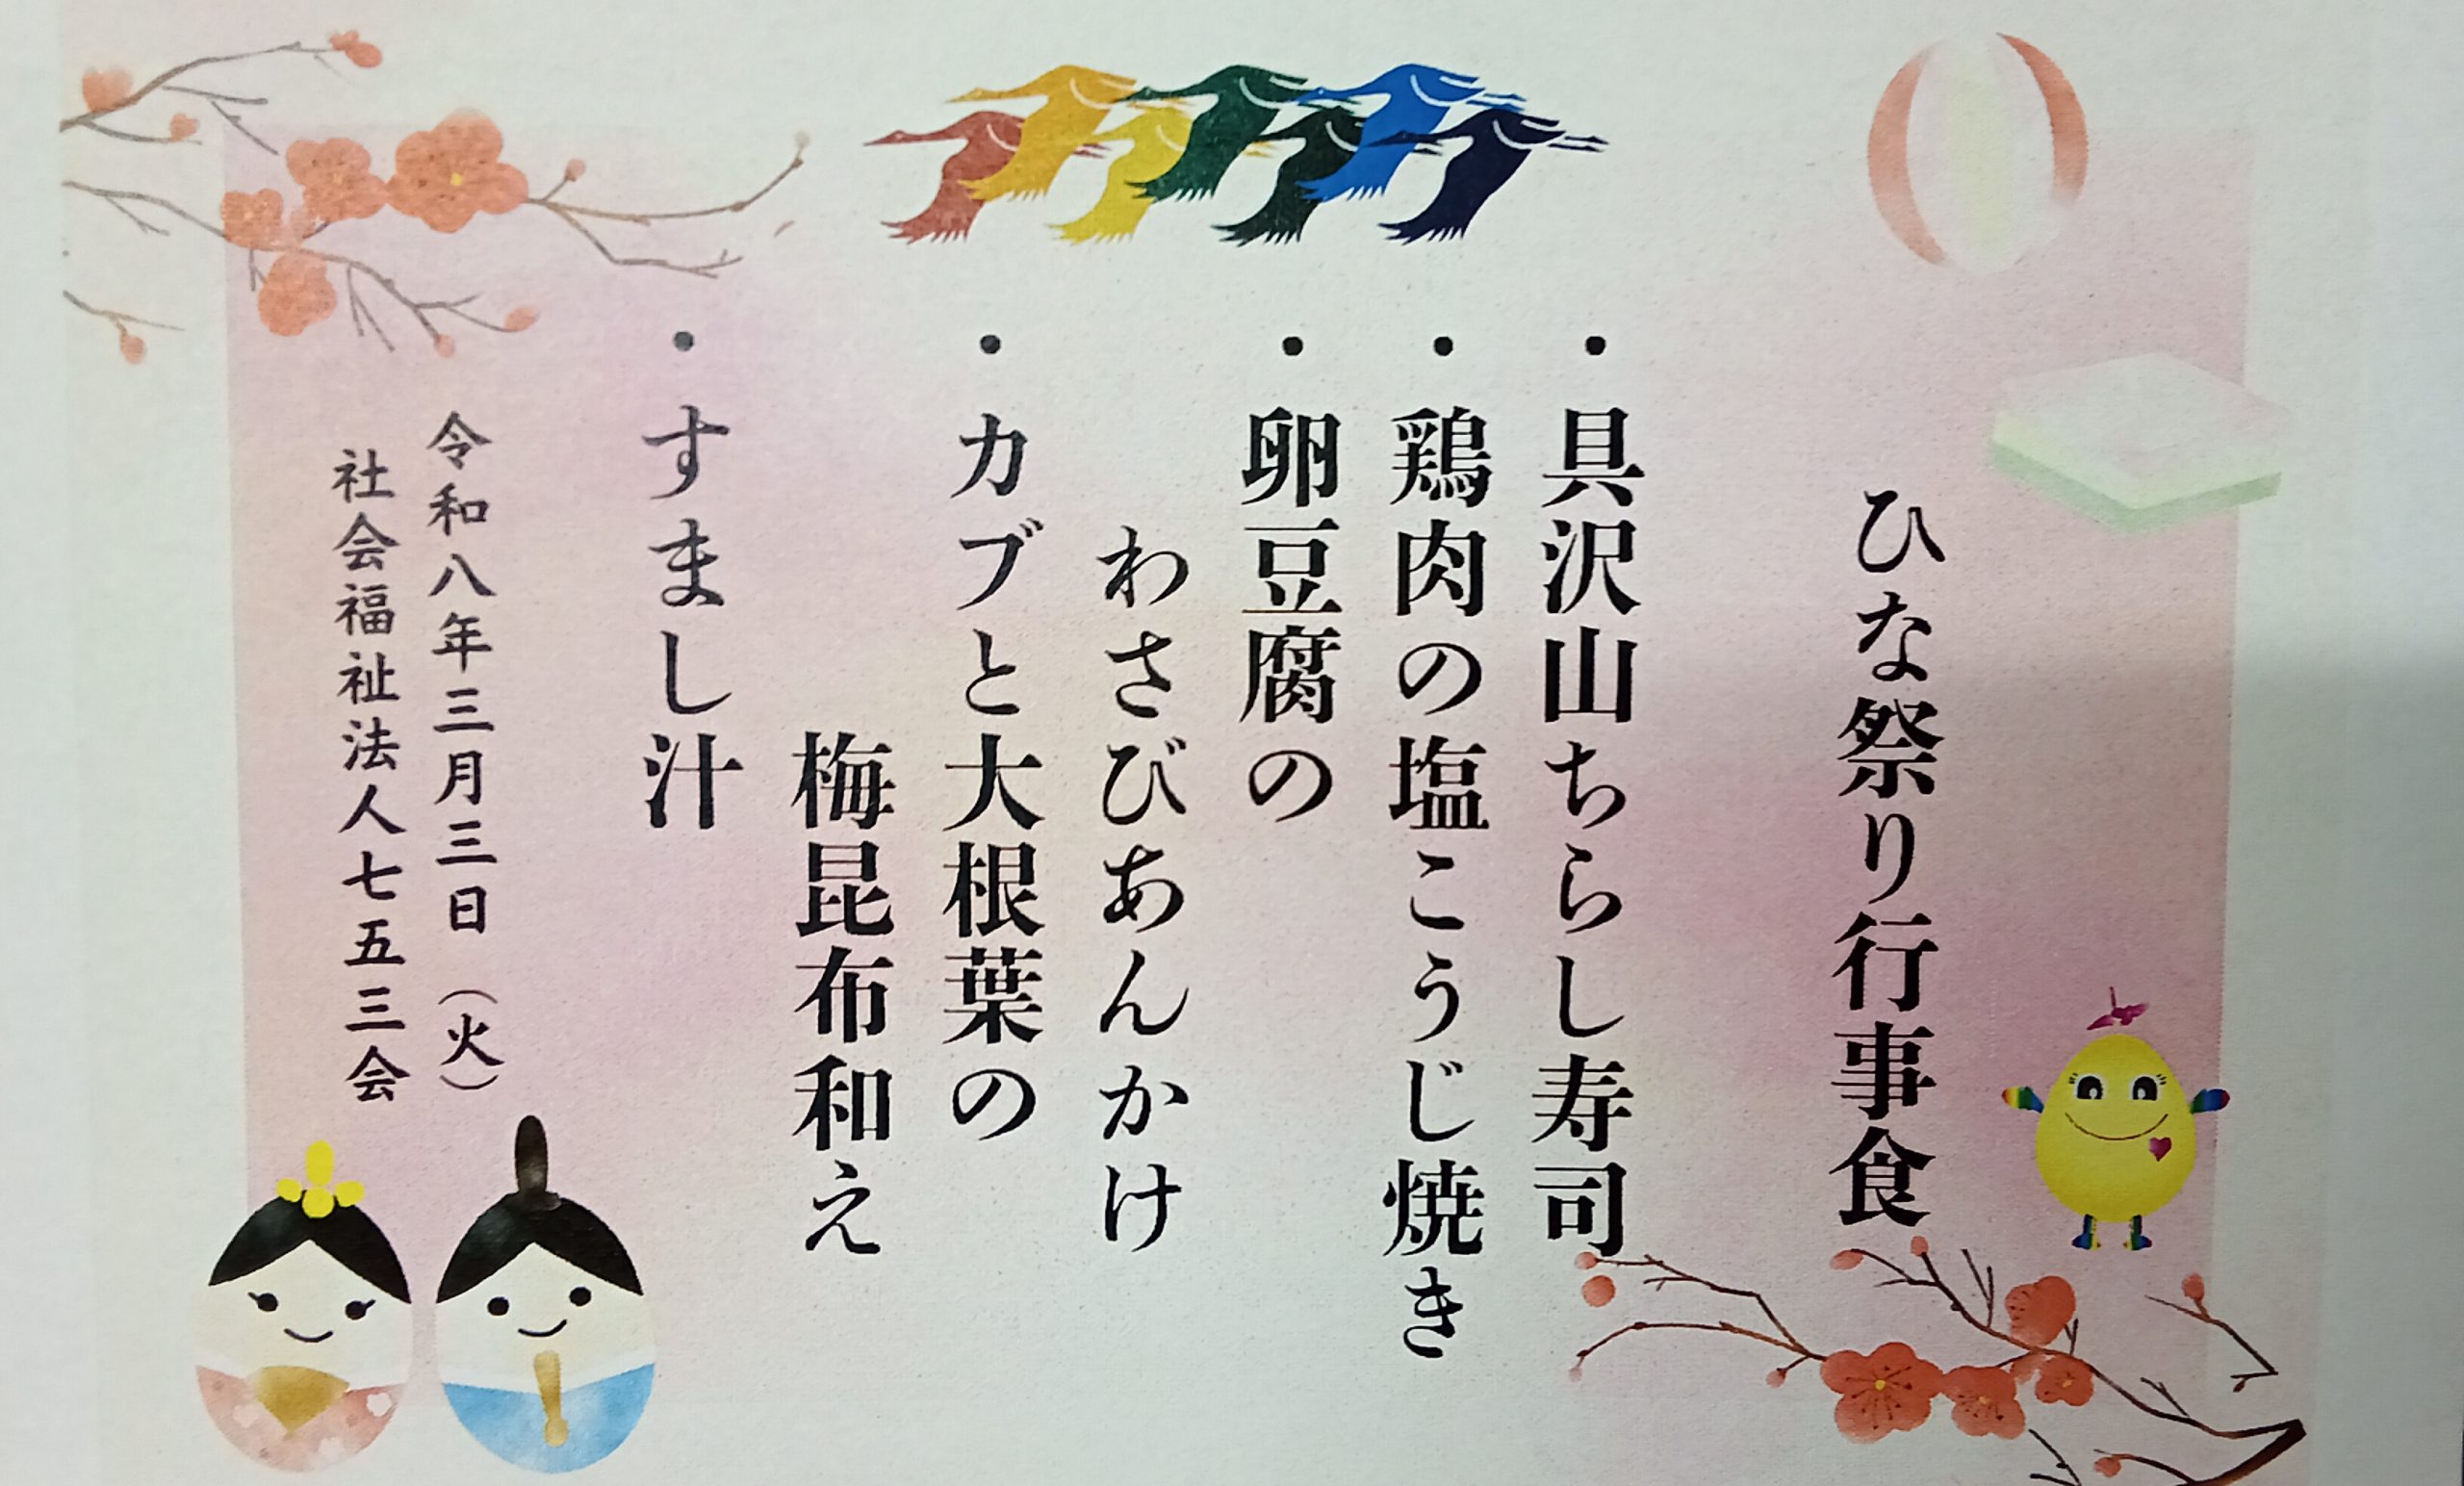 ひな祭り行事食
・具沢山ちらし寿司
・鶏肉の塩こうじ焼き
・卵豆腐の
わさびあんかけ
・カブと大根葉の
梅昆布和え
・すまし汁
令和八年三月三日（火）
社会福祉法人七五三会